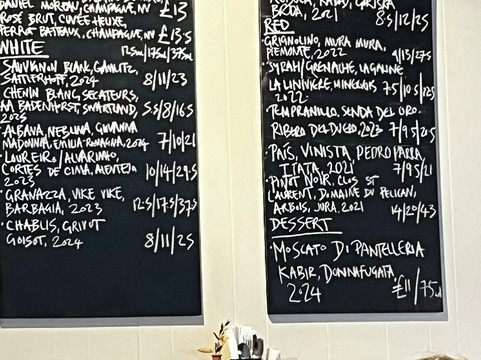 DANIEL MOREAU, CHAMPAGNE, NV £13
ROSÉ BRUT, CUVÉE
CHAMPAGNE, NV £13.5
WHITE
SAUVIGNON BLANC,
SATTLERHOF, 2024 8/11/23
CHENIN BLANC, SECATEURS,
AA BADENHORST, SWARTLAND, 5.5/8/16.5
2023
ALBANA, NEBLINA, GIOVANNA
MADONNA, EMILIA-ROMAGNA, 2024 7/10/21
LOUREIRO/ALVARINHO,
CORTES DE CIMA, ALENTEJO 10/14/29.5
2023
GRANAZZA, VIKE VIKE,
BARBAGIA, 2023 12.5/17.5/37.5
CHABLIS, GRIVOT
GOISOT, 2024 8/11/25
2021 8.5/12/25
RED
GRIGNOLINO, MURA MURA,
PIEMONTE, 2022 9/13/27.5
SYRAH/GRENACHE,
LA LINIÈRE, MINERVOIS 7.5/10.5/22.5
2022
TEMPRANILLO, SENDA DEL ORO
RIBERA DEL DUERO, 2023 7/9.5/20.5
PAÍS, VINISTA, PEDRO PARRA
ITATA, 2021 7/9.5/21
PINOT NOIR, CLOS ST
LAURENT, DOMAINE DU PELICAN,
ARBOIS, JURA, 2021 14/20/43
DESSERT
MOSCATO DI PANTELLERIA
KABIR, DONNAFUGATA
2024 £11/75ml